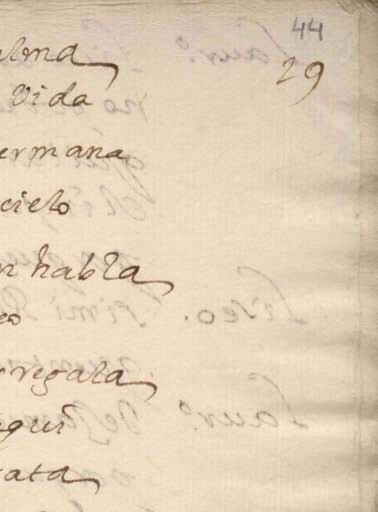 44
29
alma
Vida
ermana
cielo
n habla
eo
regala
aqui
ata